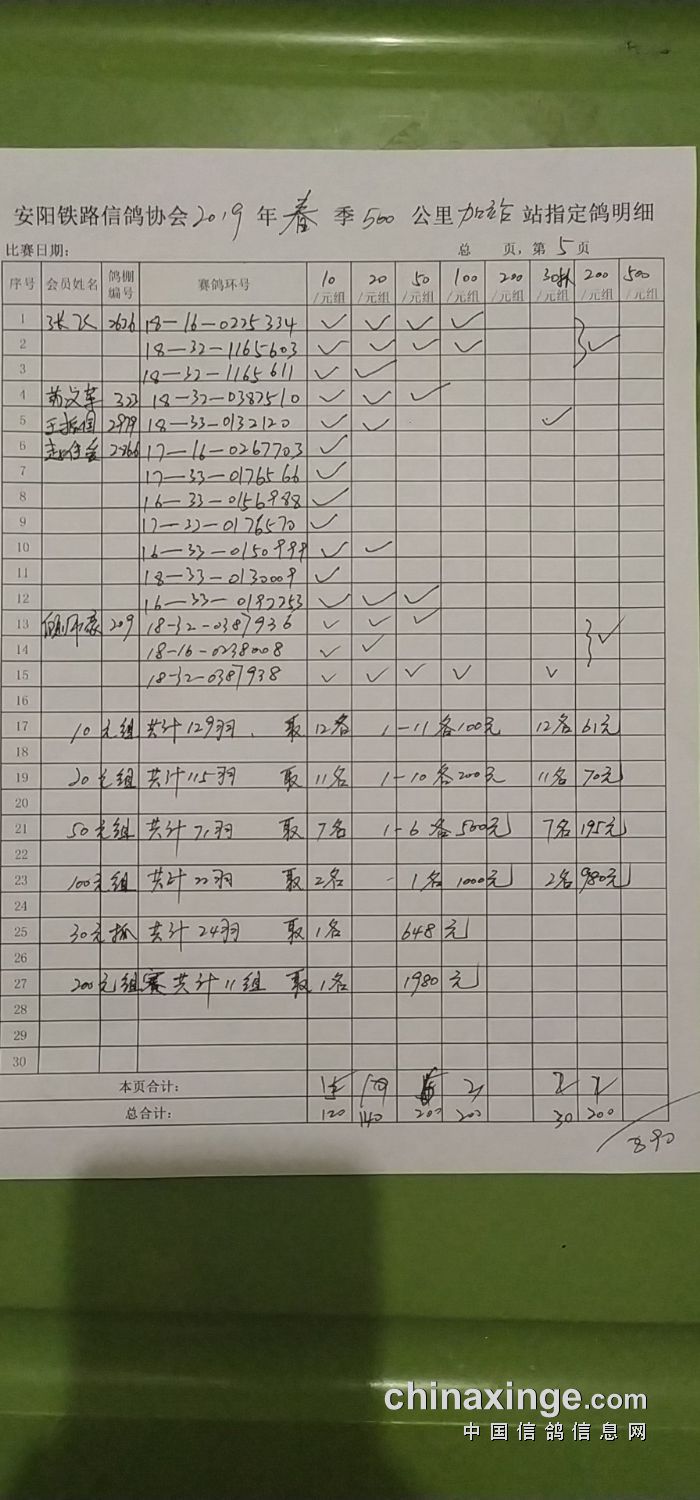 安阳铁路信鸽协会2019年春季500公里加站站指定鸽明细
比赛日期: 总 页,第5页
序号 会员姓名 鸽棚编号 赛鸽环号 10/元组 20/元组 50/元组 100/元组 200/元组 30抓/元组 200/元组 500/元组
1 张飞 2626 18-16-0225334 ✓ ✓ ✓ ✓
2 18-32-1165603 ✓ ✓ ✓ ✓ ✓
3 18-32-1165611 ✓ ✓
4 323 18-32-0382510 ✓ ✓ ✓
5 王振国 2979 18-33-0132120 ✓ ✓ ✓
6 2866 17-16-0267703 ✓
7 17-33-0176566 ✓
8 16-33-0156988 ✓
9 17-33-0176570 ✓
10 16-33-0150999 ✓ ✓
11 18-33-0130009 ✓
12 16-33-0192253 ✓ ✓ ✓
13 209 18-32-0387936 ✓ ✓ ✓ ✓
14 18-16-0238008 ✓ ✓
15 18-32-0387938 ✓ ✓ ✓ ✓ ✓
16
17 10元组 共计129羽. 取12名 1-11各100元 12名61元
18
19 20元组 共计115羽 取11名 1-10各200元 11名70元
20
21 50元组 共计71羽 取7名 1-6各500元 7名195元
22
23 100元组 共计22羽 取2名 -1名1000元 2名980元
24
25 30元抓 共计24羽 取1名 648元
26
27 200元组赛共计11组 取1名 1980元
28
29
30
本页合计:
总合计: 120 140 200 200 30 200
890
chinaxinge.com
中国信鸽信息网